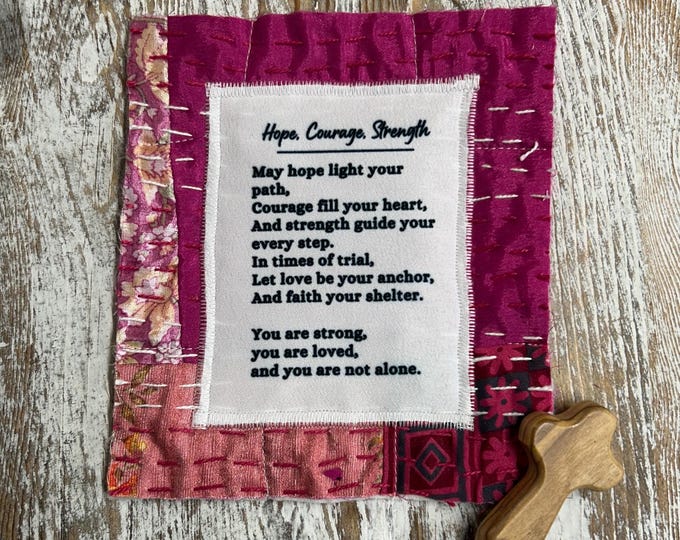 Hope, Courage, Strength
May hope light your
path,
Courage fill your heart,
And strength guide your
every step.
In times of trial,
Let love be your anchor,
And faith your shelter.
You are strong,
you are loved,
and you are not alone.